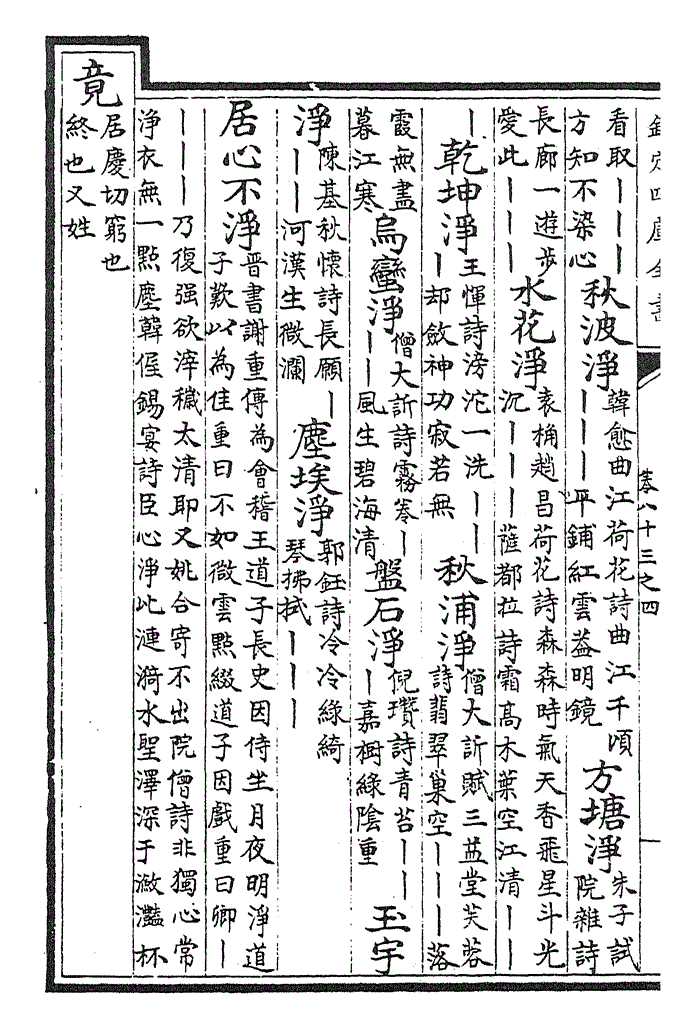 欽定四庫全書
卷八十三之四
看取丨丨丨
方知不染心
秋波淨
韓愈曲江荷花詩曲江千頃
丨丨丨平鋪紅雲葢明鏡
方塘淨
朱子試
院雜詩
長廊一遊步
愛此丨丨丨
水花淨
袁桷趙昌荷花詩森森時氣天香飛星斗光
沉丨丨丨薩都拉詩霜髙木葉空江清丨丨
丨
乾坤淨
王惲詩滂沱一洗丨丨
丨却斂神功寂若無
秋浦淨
僧大訢賦三益堂芙蓉
詩翡翠巢空丨丨丨落
霞無盡
暮江寒
烏蠻淨
僧大訢詩霧岺丨
丨丨風生碧海清
盤石淨
倪瓚詩青苔丨丨
丨嘉樹綠陰重
玉宇
淨
陳基秋懷詩長願丨
丨丨河漢生微瀾
塵埃淨
郭鈺詩冷冷綠綺
琴拂拭丨丨丨
居心不淨
晉書謝重傳為會稽王道子長史因侍坐月夜明淨道
子歎以為佳重曰不如微雲點綴道子因戲重曰卿丨
丨丨丨乃復强欲滓穢太清耶又姚合寄不出院僧詩非獨心常
淨衣無一點塵韓偓錫宴詩臣心淨此漣漪水聖澤深于瀲灩杯
竟
居慶切窮也
終也又姓